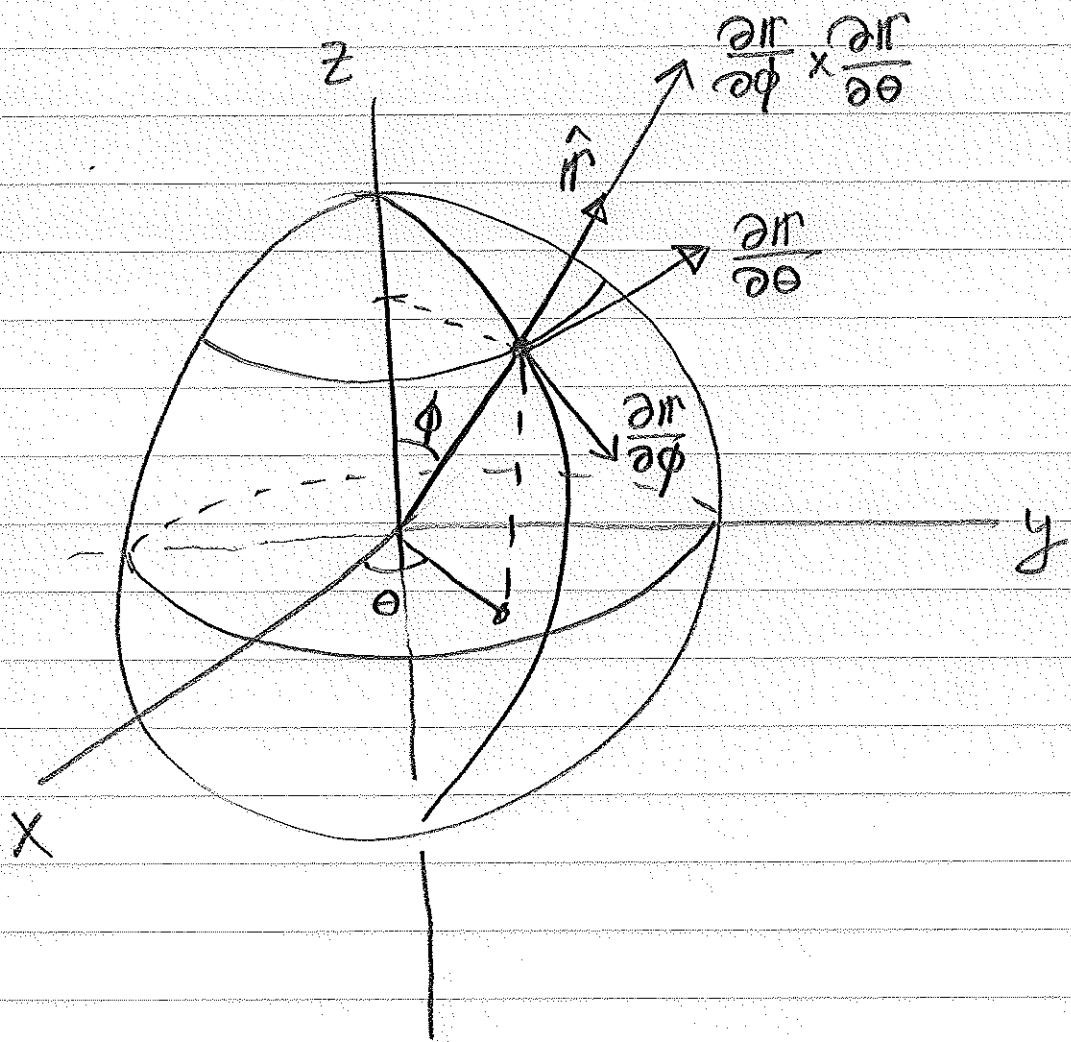 z
∂r/∂ϕ × ∂r/∂θ
r̂
∂r/∂θ
ϕ
∂r/∂ϕ
y
θ
x